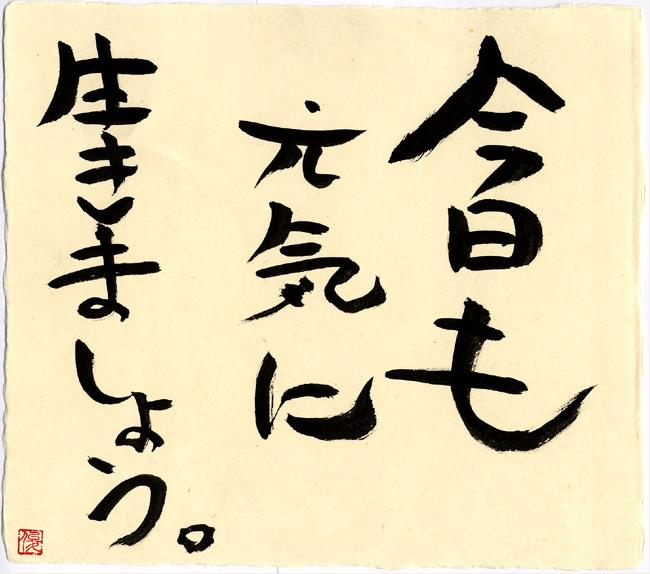 今日も
元気に
生きましょう。